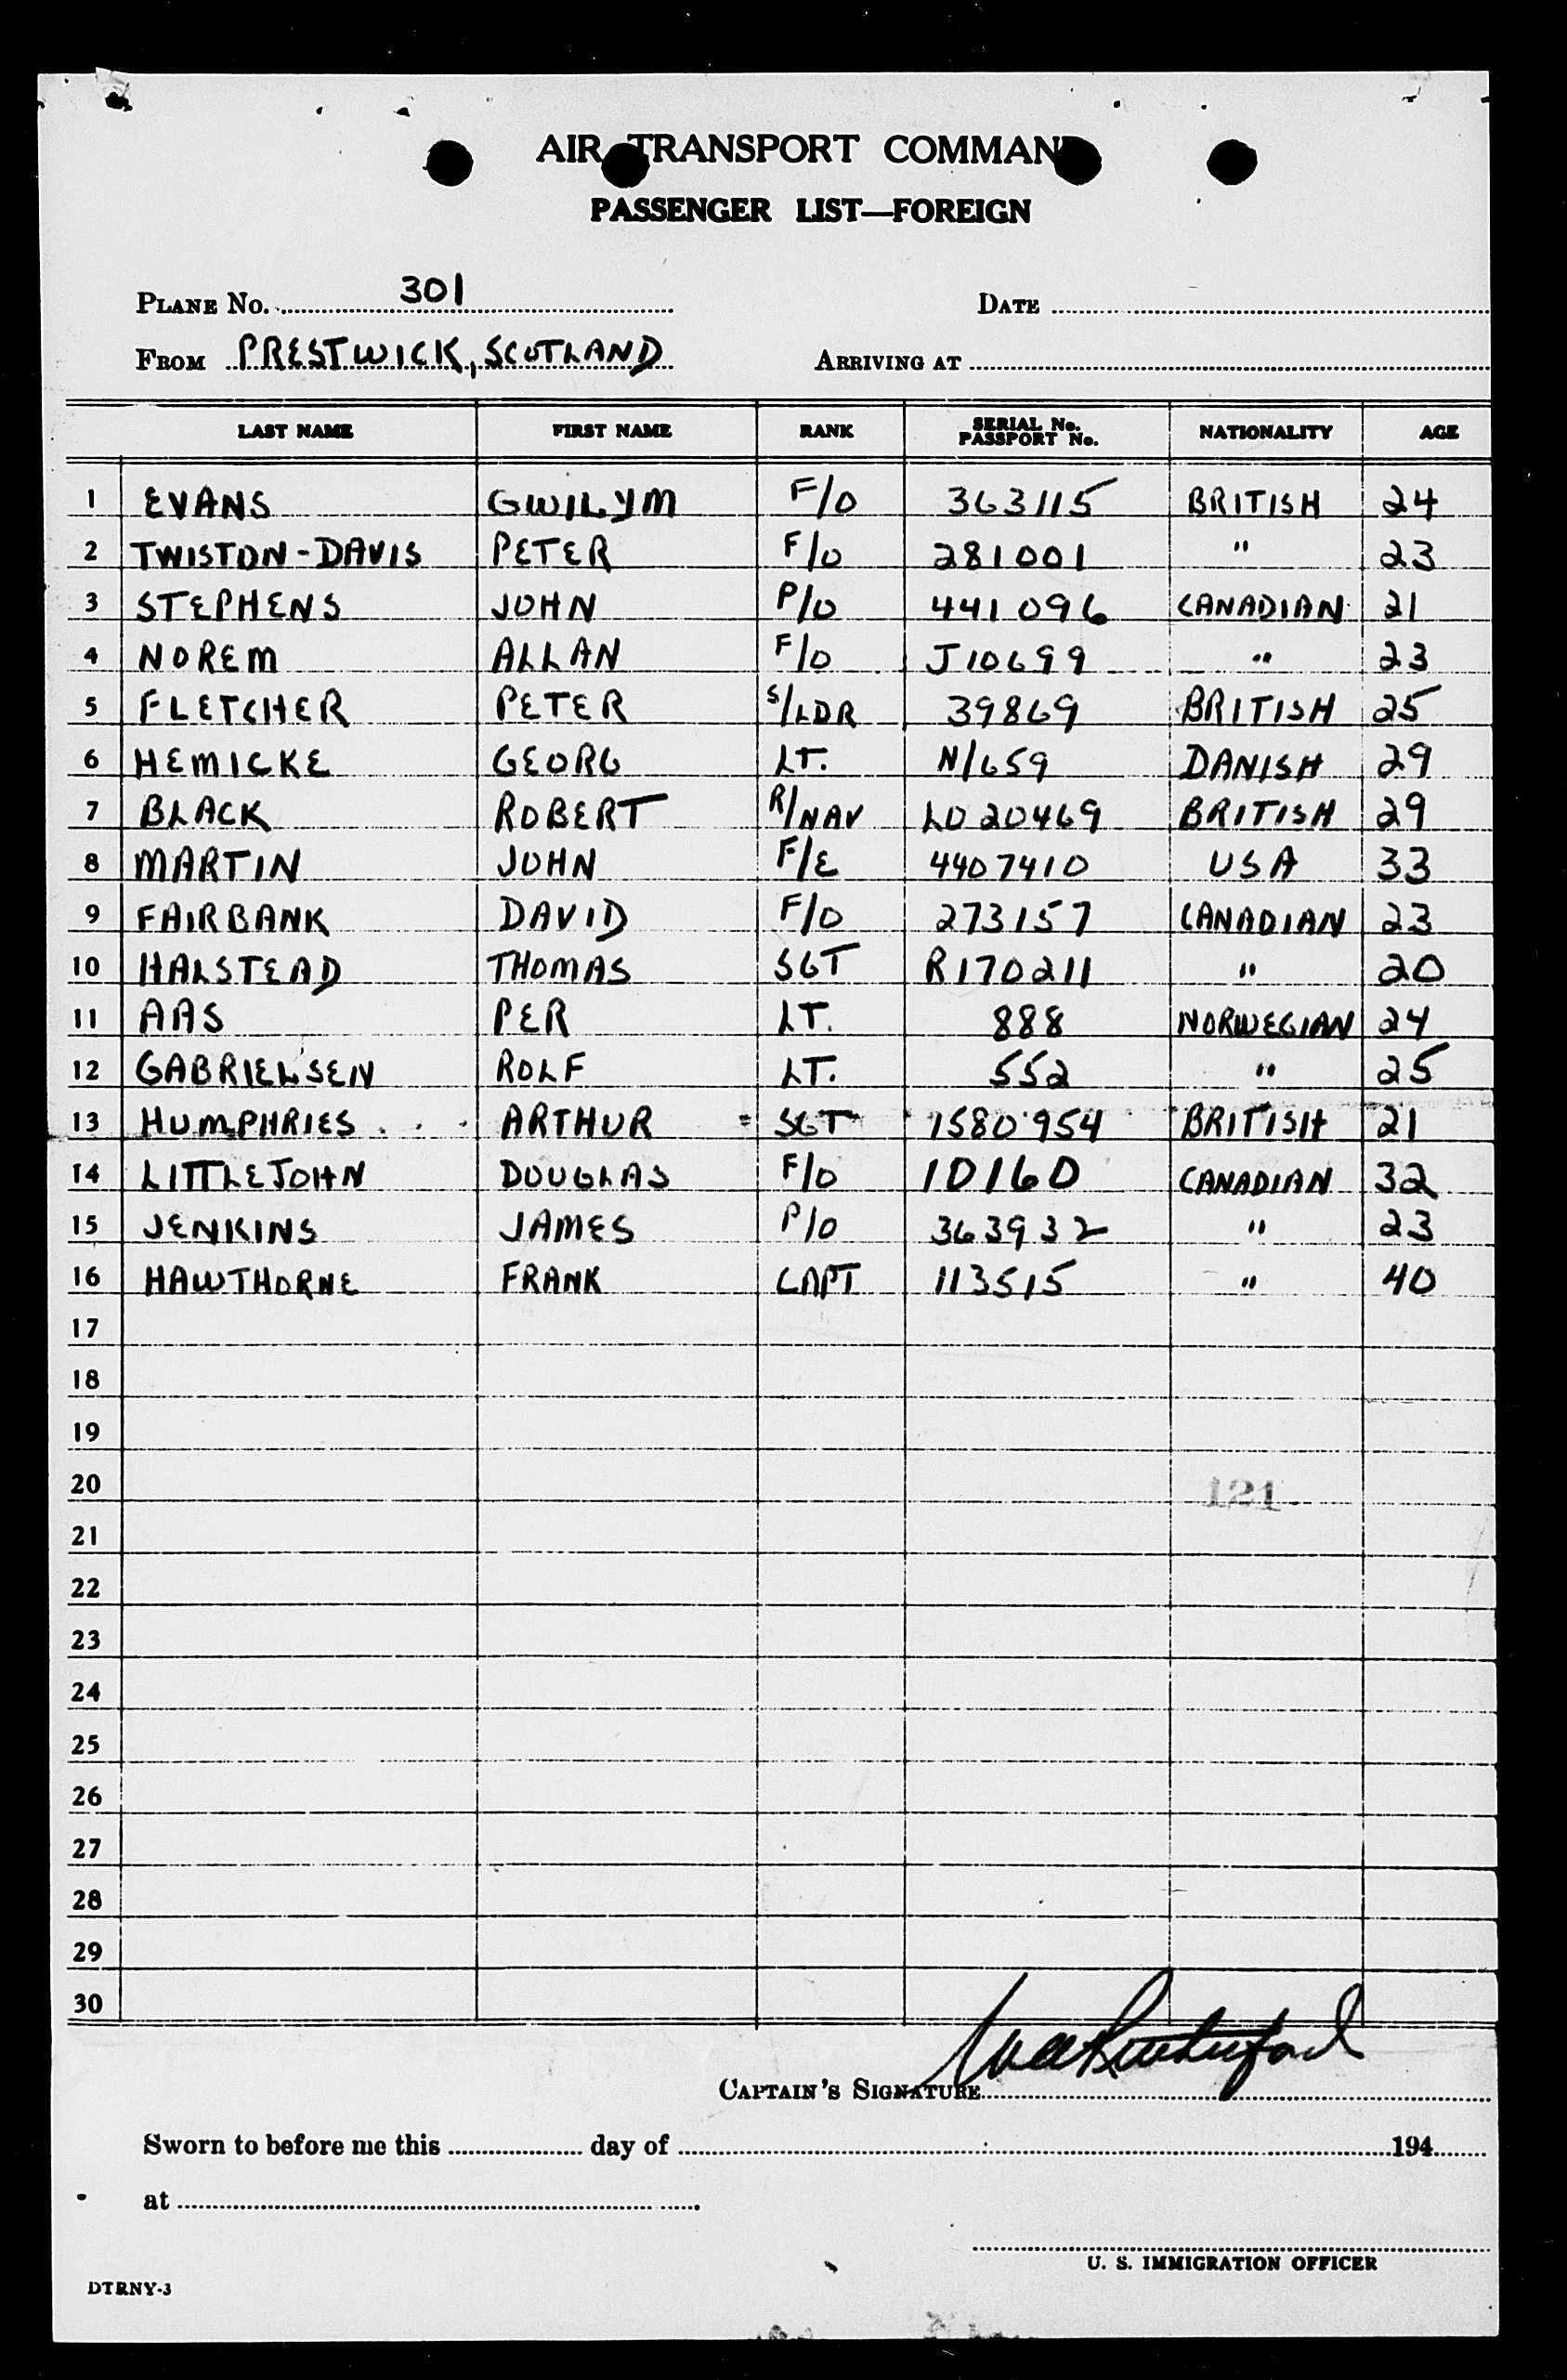 AIR TRANSPORT COMMAND
PASSENGER LIST—FOREIGN
PLANE No. 301 DATE
FROM PRESTWICK, SCOTLAND ARRIVING AT
LAST NAME FIRST NAME RANK SERIAL No. PASSPORT No. NATIONALITY AGE
1 EVANS GWILYM F/O 363115 BRITISH 24
2 TWISTON-DAVIS PETER F/O 281001 " 23
3 STEPHENS JOHN P/O 441096 CANADIAN 21
4 NOREM ALLAN F/O J10699 " 23
5 FLETCHER PETER S/LDR 39869 BRITISH 25
6 HEMICKE GEORG LT. N/659 DANISH 29
7 BLACK ROBERT R/NAV LO20469 BRITISH 29
8 MARTIN JOHN F/E 4407410 USA 33
9 FAIRBANK DAVID F/O 273157 CANADIAN 23
10 HALSTEAD THOMAS SGT R170211 " 20
11 AAS PER LT. 888 NORWEGIAN 24
12 GABRIELSEN ROLF LT. 552 " 25
13 HUMPHRIES ARTHUR SGT 1580954 BRITISH 21
14 LITTLEJOHN DOUGLAS F/O 10160 CANADIAN 32
15 JENKINS JAMES P/O 363932 " 23
16 HAWTHORNE FRANK CAPT 113515 " 40
17
18
19
20 121
21
22
23
24
25
26
27
28
29
30
CAPTAIN'S SIGNATURE Rutherford
Sworn to before me this day of 194
at
U. S. IMMIGRATION OFFICER
DTRNY-3